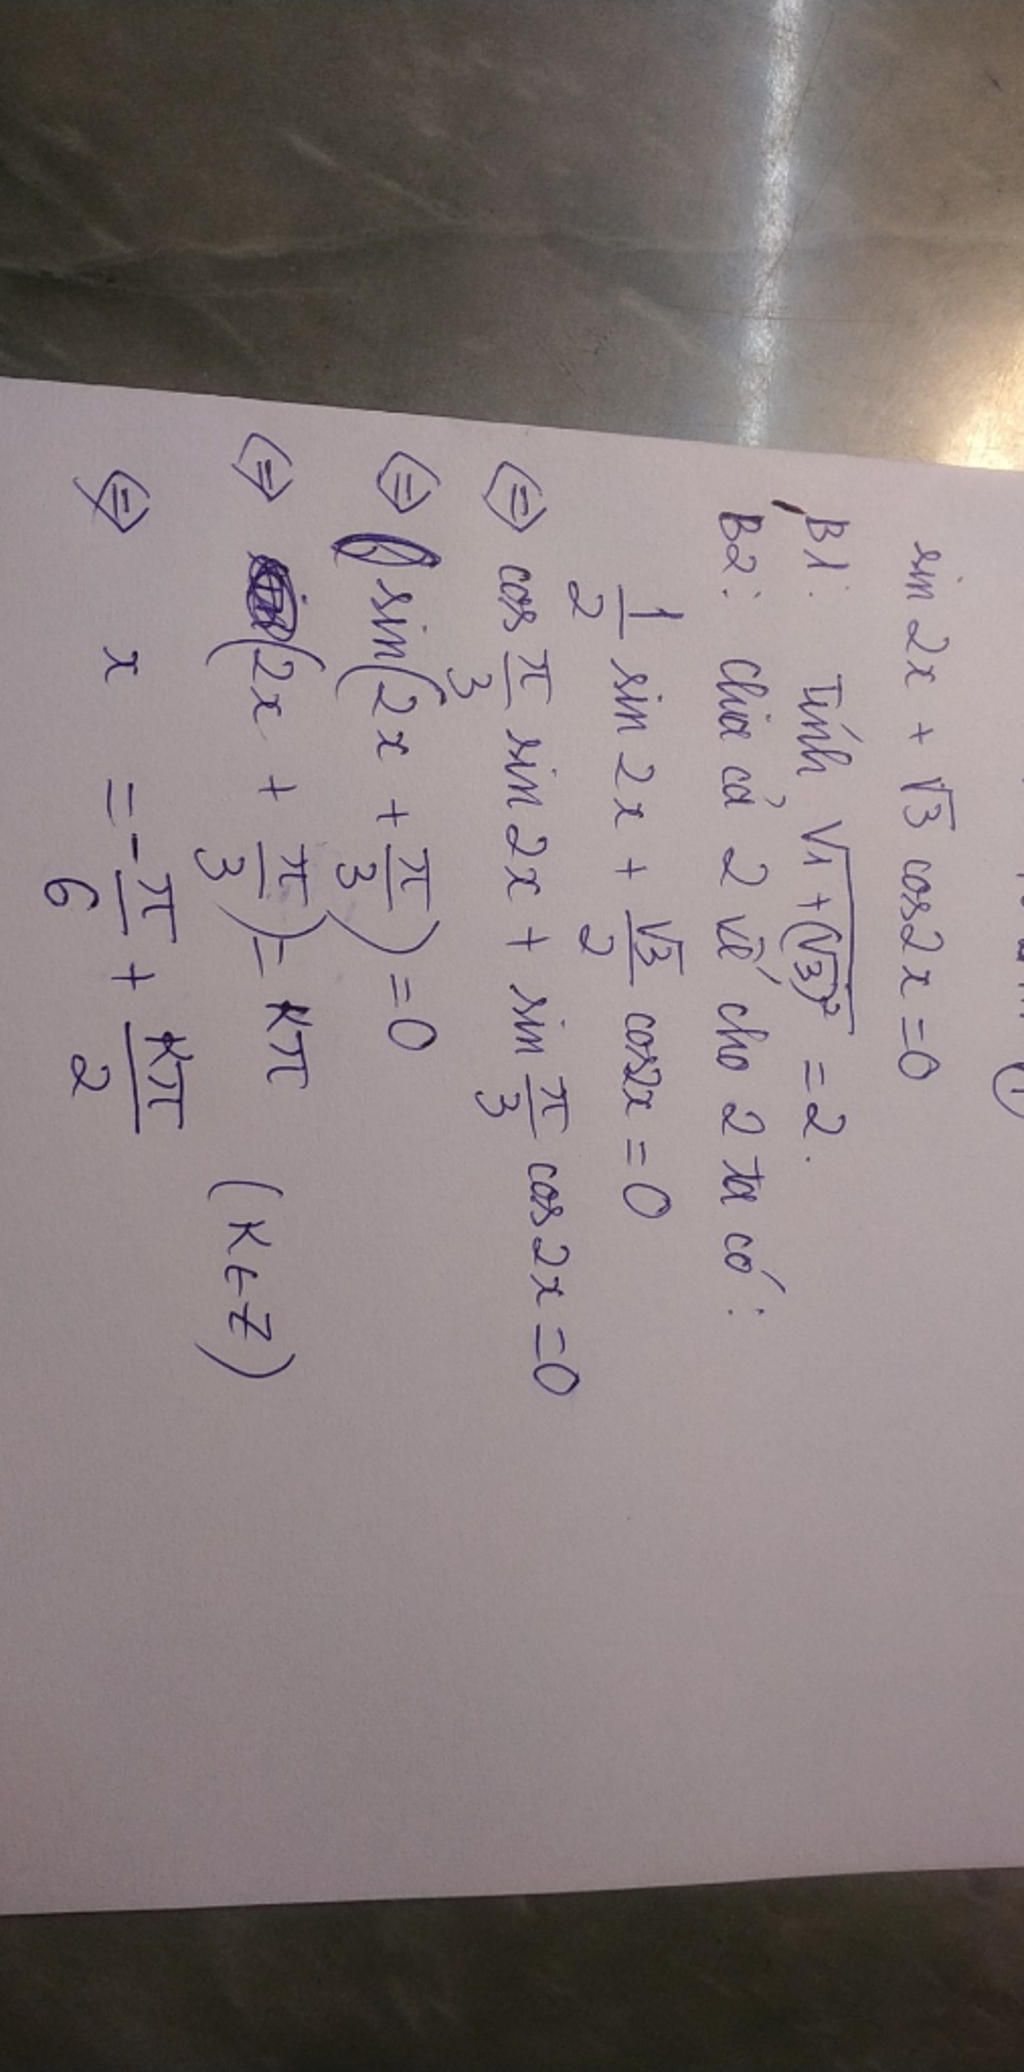 sin 2x + √3 cos 2x = 0
B1: Tính √(1 + (√3)²) = 2.
B2: chia cả 2 vế cho 2 ta có:
1/2 sin 2x + √3/2 cos 2x = 0
⇔ cos π/3 sin 2x + sin π/3 cos 2x = 0
⇔ sin(2x + π/3) = 0
⇔ (2x + π/3) = kπ
⇔ x = -π/6 + kπ/2 (k ∈ Z)